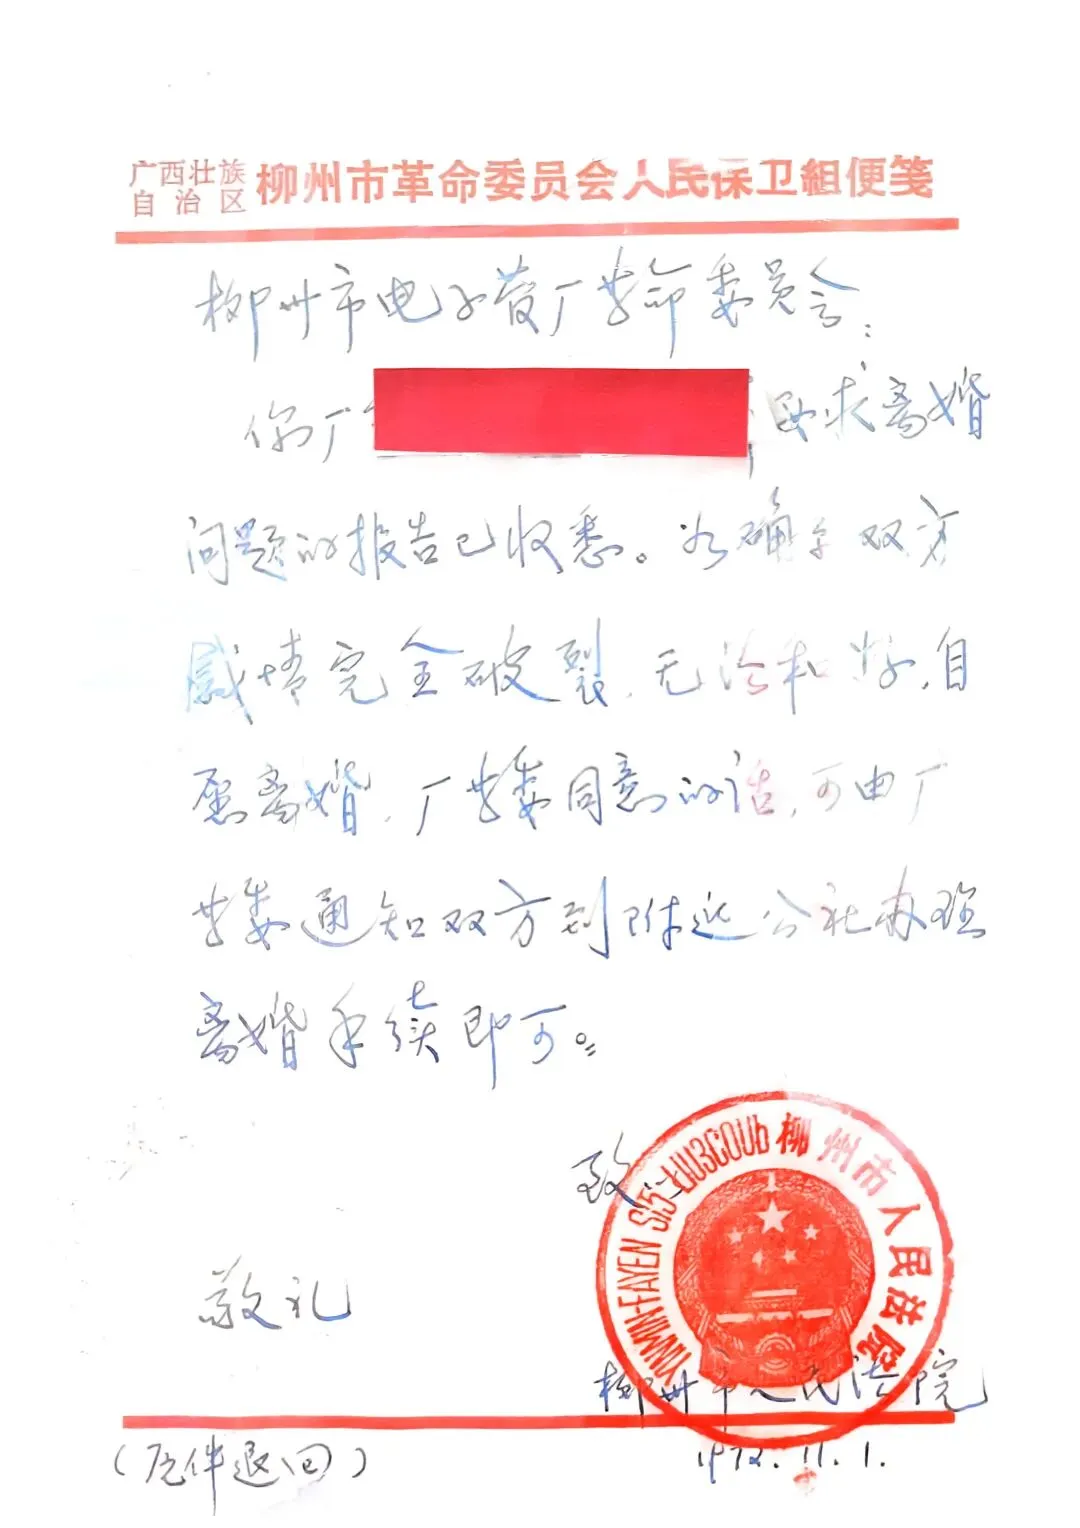 广西壮族
自治区
柳州市革命委员会人民保卫组便笺
柳州市电子管厂革命委员会：
你厂 要求离婚
问题的报告已收悉。如确系双方
感情完全破裂，无法和好，自
愿离婚，厂革委同意的话，可由厂
革委通知双方到附近公社办理
离婚手续即可。
致以
敬礼
YINMIN FAYEN SI5 LIUЗCOUƅ 柳州市人民法院
柳州市人民法院
1972.11.1.
（原件退回）